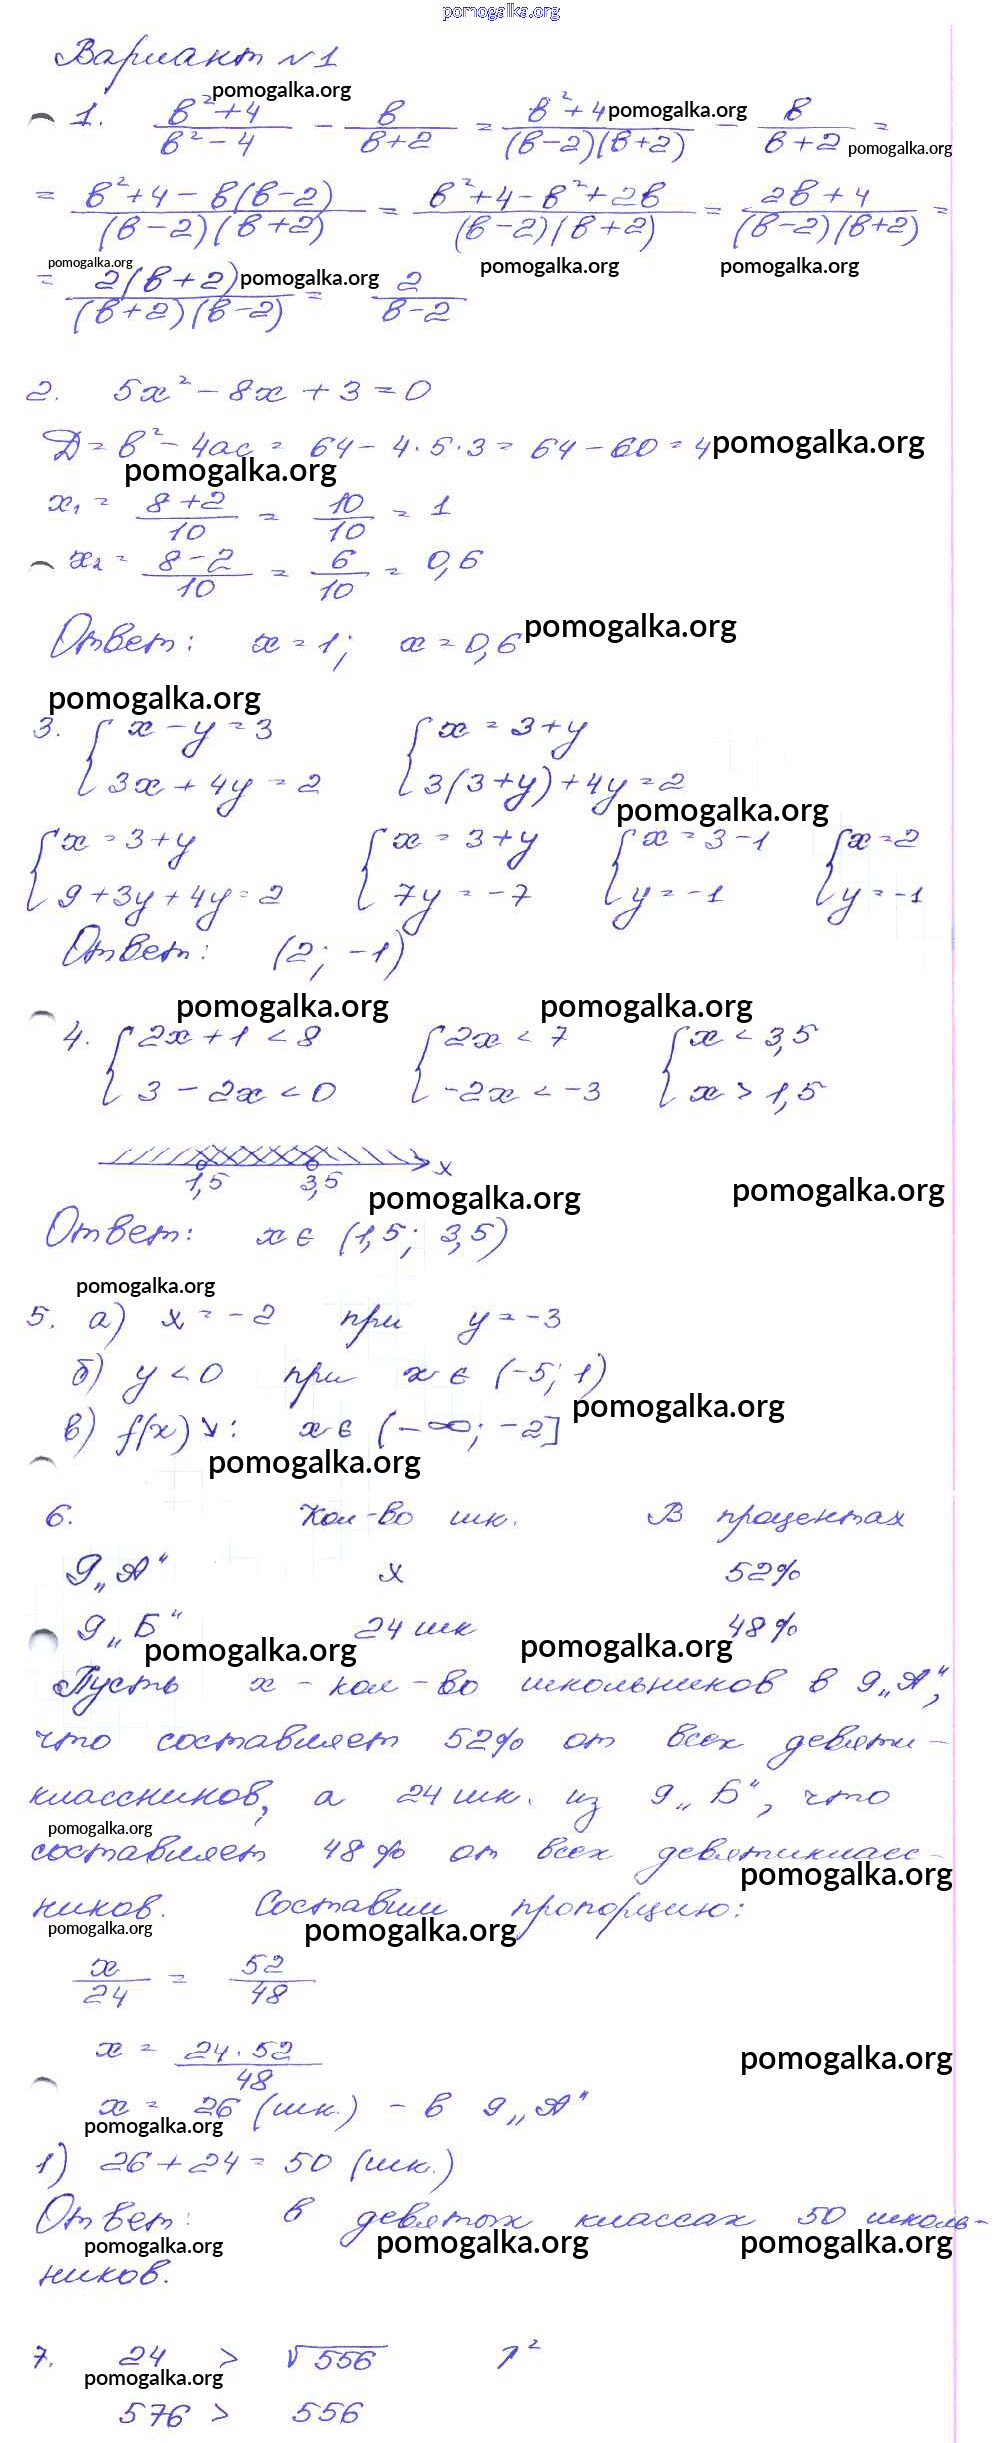 pomogalka.org
Вариант №1
pomogalka.org
1. (в²+4)/(в²-4) - в/(в+2) = (в²+4)/((в-2)(в+2)) - в/(в+2) =
pomogalka.org
pomogalka.org
= (в²+4-в(в-2))/((в-2)(в+2)) = (в²+4-в²+2в)/((в-2)(в+2)) = (2в+4)/((в-2)(в+2)) =
pomogalka.org pomogalka.org pomogalka.org pomogalka.org
= 2(в+2)/((в+2)(в-2)) = 2/(в-2)
2. 5x²-8x+3=0
Д=в²-4ac = 64-4·5·3 = 64-60=4 pomogalka.org
pomogalka.org
x₁ = (8+2)/10 = 10/10 = 1
x₂ = (8-2)/10 = 6/10 = 0,6
Ответ: x=1; x=0,6 pomogalka.org
pomogalka.org
3. { x-y=3 { x=3+y
3x+4y=2 3(3+y)+4y=2
pomogalka.org
{ x=3+y { x=3+y { x=3-1 { x=2
9+3y+4y=2 7y=-7 y=-1 y=-1
Ответ: (2; -1)
pomogalka.org pomogalka.org
4. { 2x+1<8 { 2x<7 { x<3,5
3-2x<0 -2x<-3 x>1,5
x
1,5 3,5
pomogalka.org pomogalka.org
Ответ: x∈(1,5; 3,5)
pomogalka.org
5. а) x=-2 при y=-3
б) y<0 при x∈(-5; 1)
pomogalka.org
в) f(x)↘: x∈(-∞; -2]
pomogalka.org
6. Кол-во шк. В процентах
9„А“ x 52%
9„Б“ 24 шк 48%
pomogalka.org pomogalka.org
Пусть x - кол-во школьников в 9„А“,
что составляет 52% от всех девяти-
классников, а 24 шк. из 9„Б“, что
pomogalka.org
составляет 48% от всех девятикласс-
pomogalka.org
ников. Составим пропорцию:
pomogalka.org pomogalka.org
x/24 = 52/48
x = (24·52)/48
pomogalka.org
x = 26 (шк.) - в 9„А“
pomogalka.org
1) 26+24=50 (шк.)
Ответ: в девятых классах 50 школь-
pomogalka.org pomogalka.org pomogalka.org
ников.
7. 24 > √556 ↑²
pomogalka.org
576 > 556